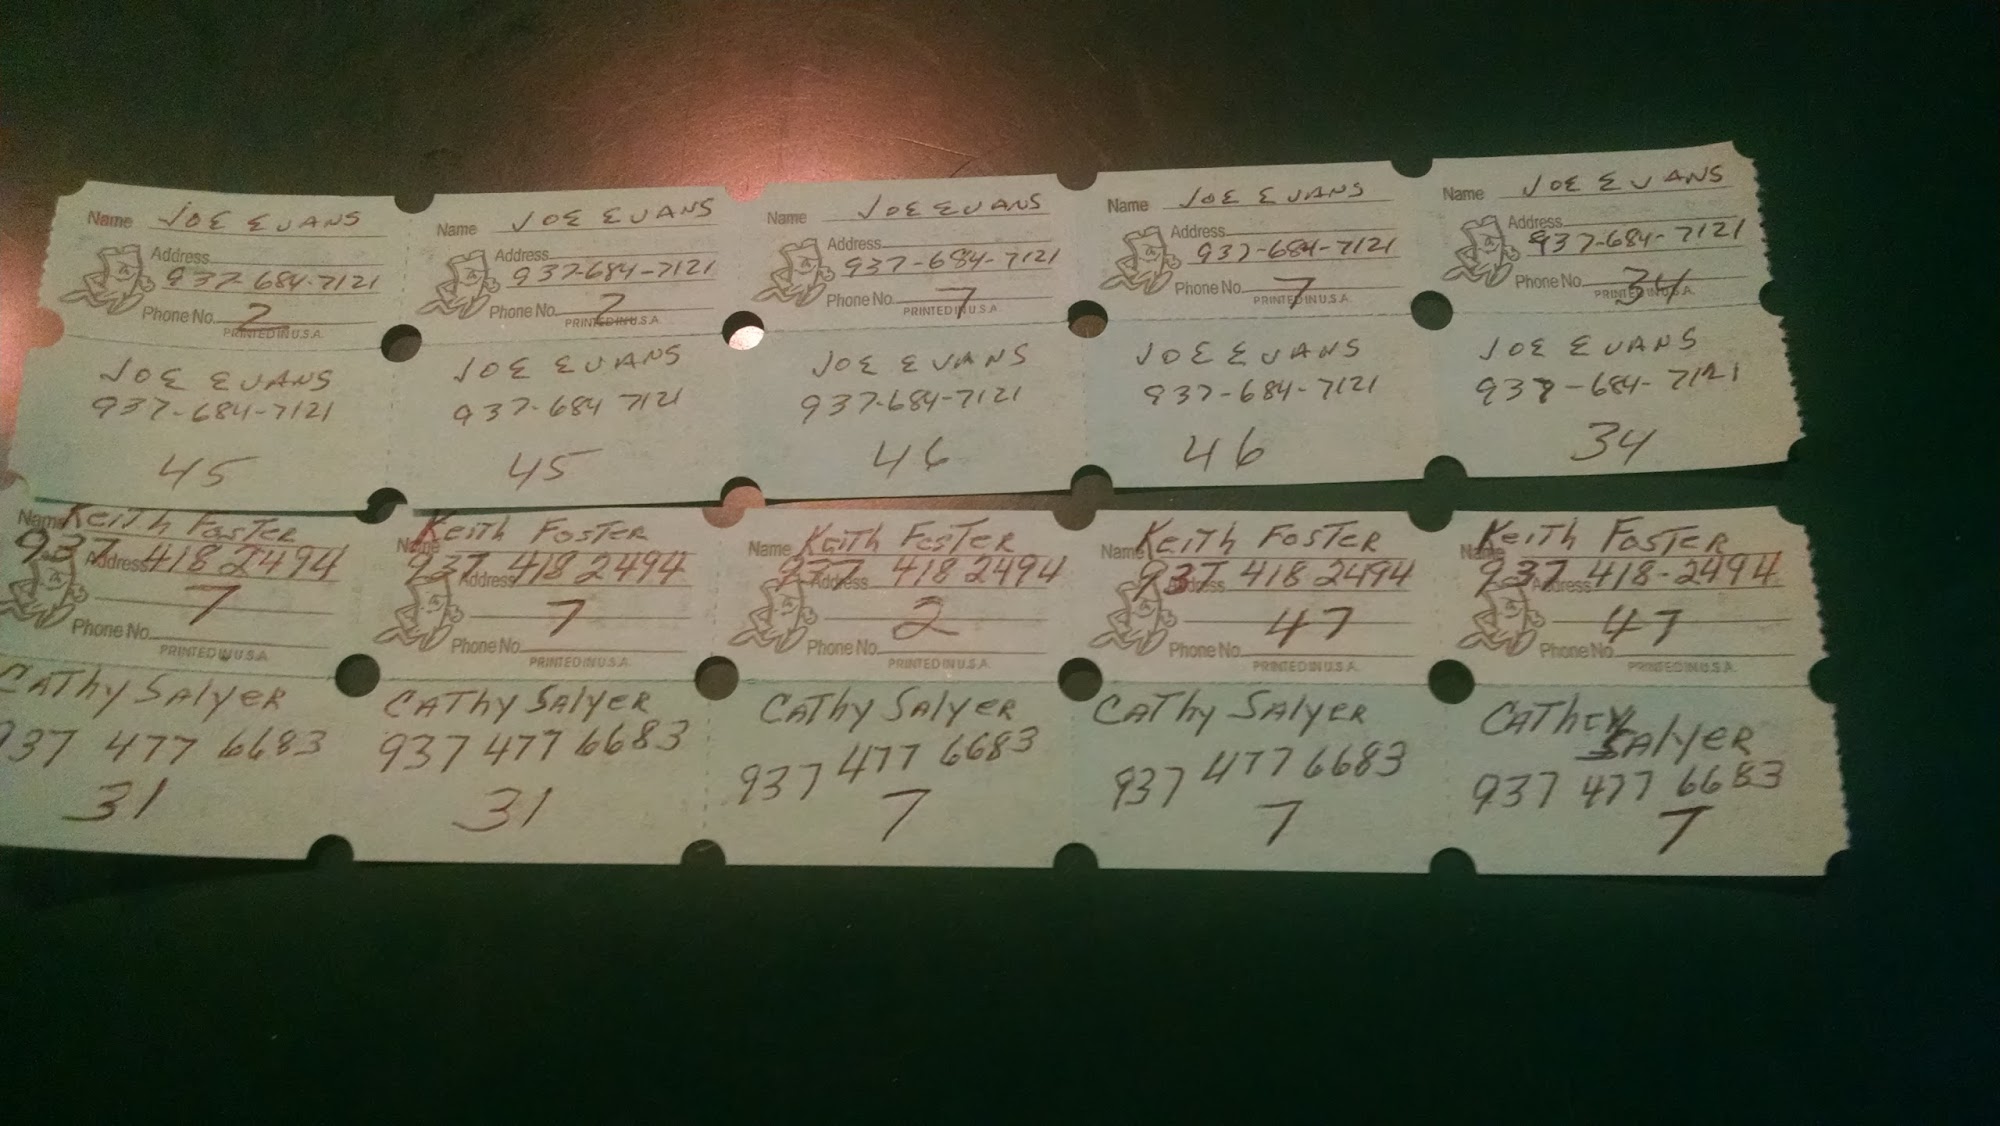 Name JOE EVANS
Address
937-684-7121
Phone No. 2
PRINTED IN U.S.A.
JOE EVANS
937-684-7121
45
Name JOE EVANS
Address
937-684-7121
Phone No. 2
PRINTED IN U.S.A.
JOE EVANS
937-684 7121
45
Name JOE EVANS
Address
937-684-7121
Phone No. 7
PRINTED IN U.S.A.
JOE EVANS
937-684-7121
46
Name JOE EVANS
Address
937-684-7121
Phone No. 7
PRINTED IN U.S.A.
JOE EVANS
937-684-7121
46
Name JOE EVANS
Address
937-684-7121
Phone No. 34
PRINTED IN U.S.A.
JOE EVANS
937-684-7121
34
Name Keith Foster
Address 937 418 2494
7
Phone No.
PRINTED IN U.S.A.
CAThy SAlyER
937 477 6683
31
Name Keith Foster
Address 937 418 2494
7
Phone No.
PRINTED IN U.S.A.
CAThy SAlyER
937 477 6683
31
Name Keith Foster
Address 937 418 2494
2
Phone No.
PRINTED IN U.S.A.
CAThy SAlyER
937 477 6683
7
Name Keith Foster
Address 937 418 2494
47
Phone No.
PRINTED IN U.S.A.
CAThy SAlyER
937 477 6683
7
Name Keith Foster
Address 937 418-2494
47
Phone No.
PRINTED IN U.S.A.
CATHEY
SAlyER
937 477 6683
7